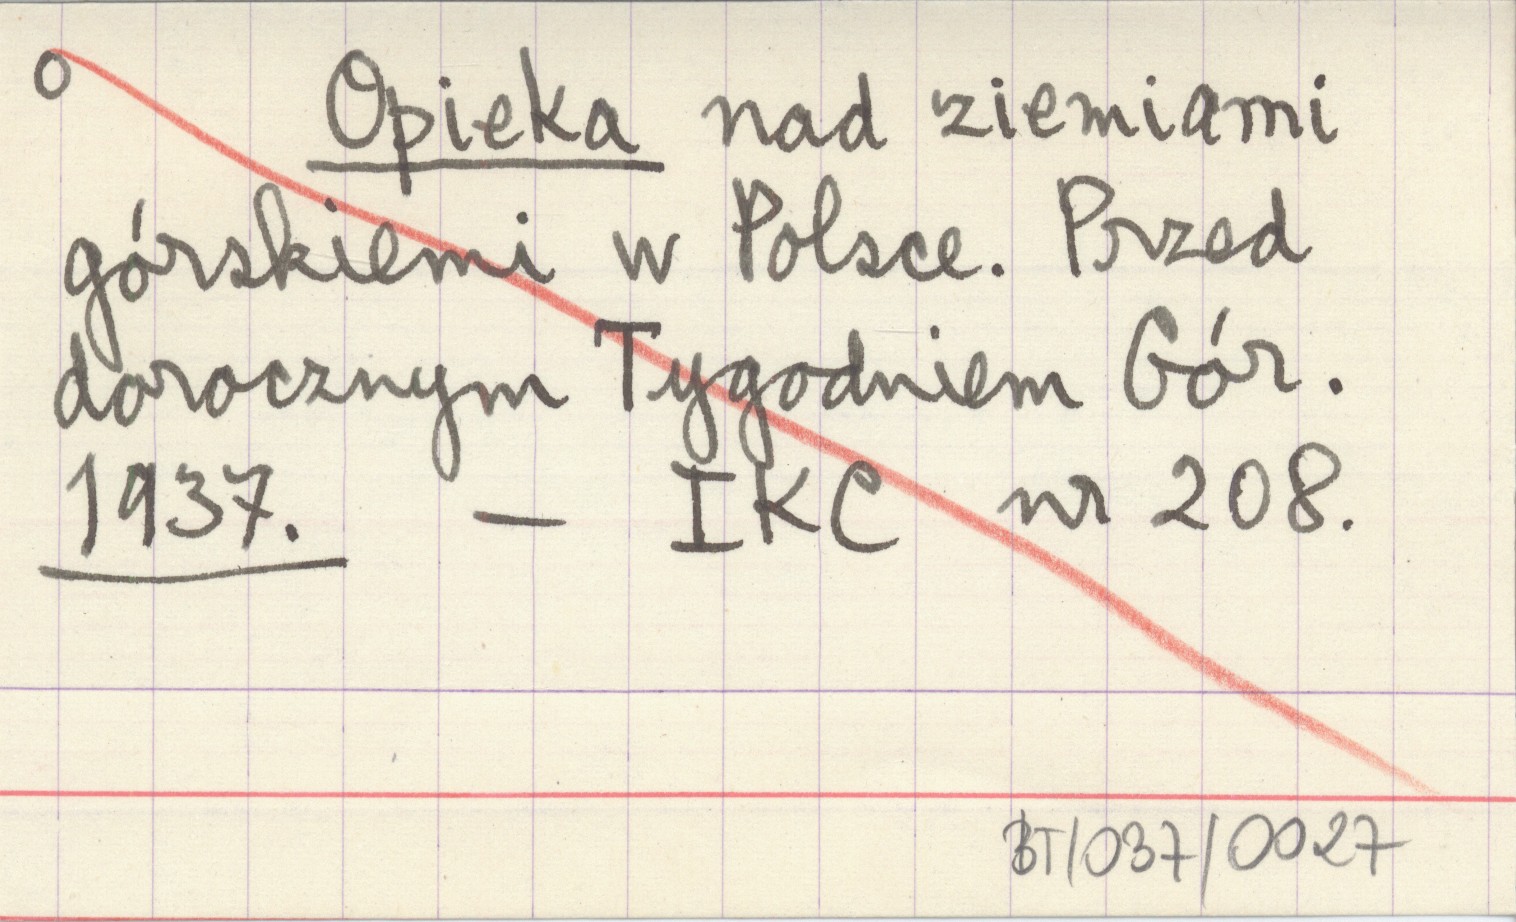 O
Opieka nad ziemiami
górskiemi w Polsce. Przed
dorocznym Tygodniem Gór.
1937. — IKC nr 208.
BT/037/0027